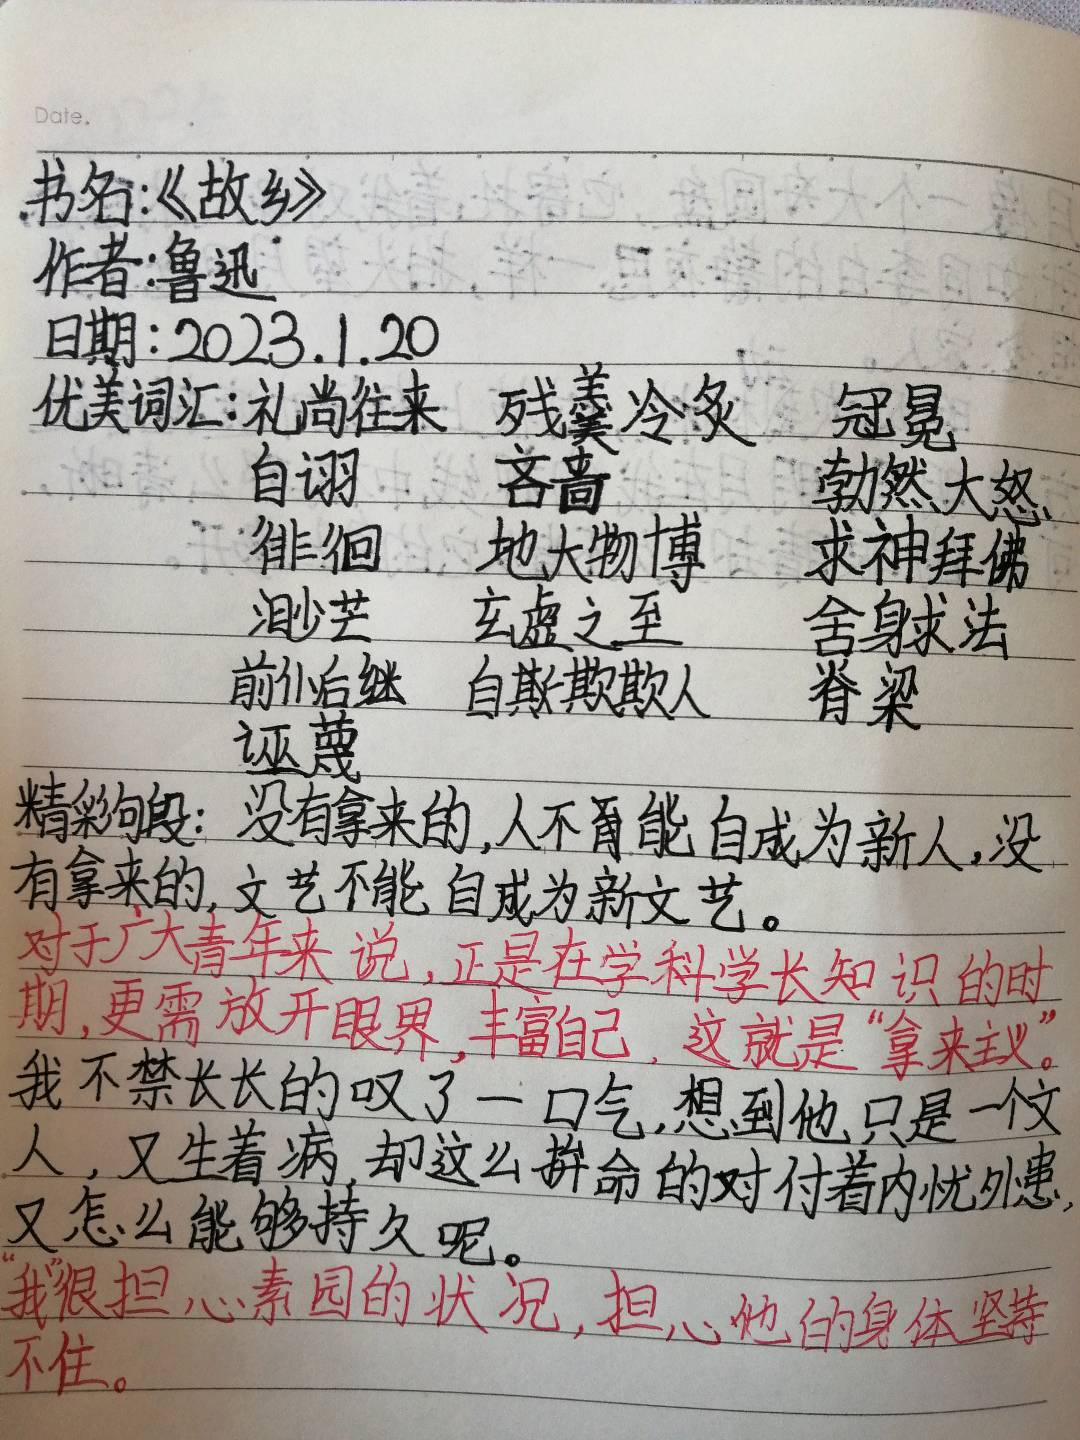 Date.
书名:《故乡》
作者:鲁迅
日期:2023.1.20
优美词汇:礼尚往来 残羹冷炙 冠冕
自诩 吝啬 勃然大怒
徘徊 地大物博 求神拜佛
渺芒 玄虚之至 舍身求法
前仆后继 自欺欺人 脊梁
诬蔑
精彩句段: 没有拿来的,人不能自成为新人,没
有拿来的,文艺不能自成为新文艺。
对于广大青年来说,正是在学科学长知识的时
期,更需放开眼界,丰富自己,这就是“拿来主义”。
我不禁长长的叹了一口气,想到他只是一个文
人,又生着病,却这么拼命的对付着内忧外患,
又怎么能够持久呢。
“我”很担心素园的状况,担心他的身体坚持
不住。